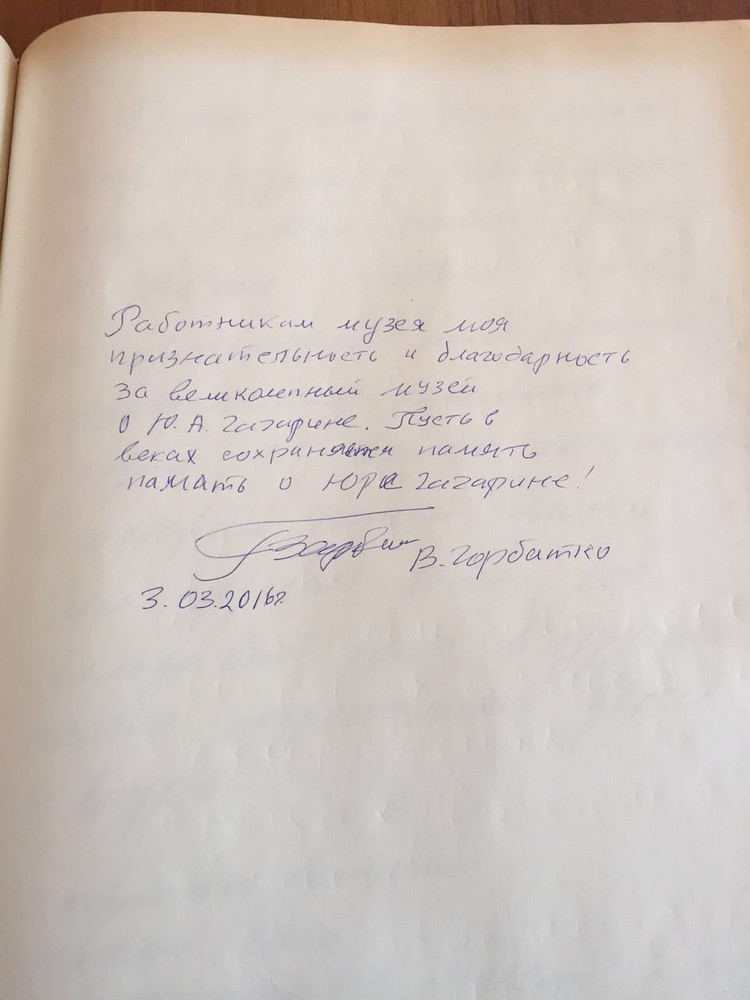 Работникам музея моя
признательность и благодарность
за великолепный музей
о Ю.А. Гагарине. Пусть в
веках сохраняется память
память о Юре Гагарине!
В. Горбатко
3.03.2016г.